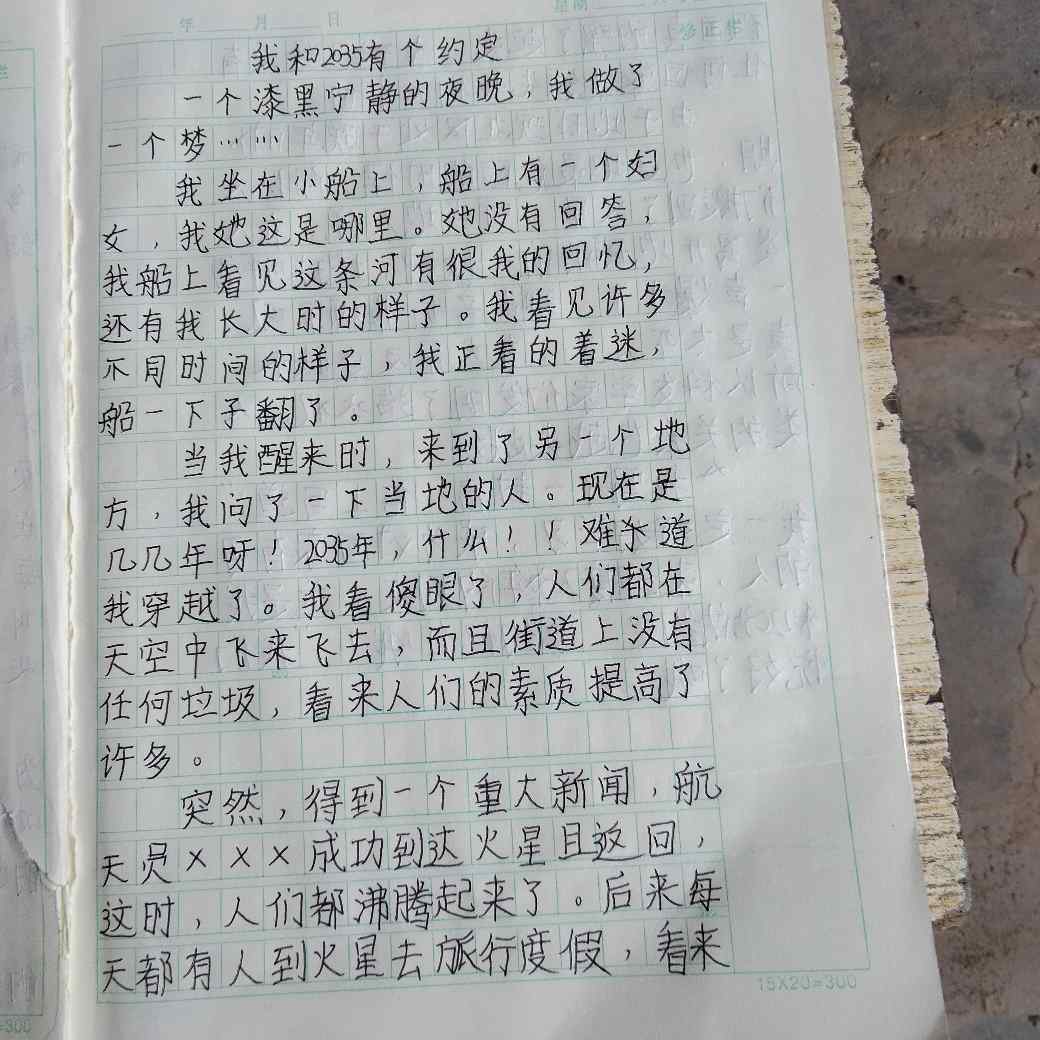 年 月 日
星期
我和2035有个约定
一个漆黑宁静的夜晚，我做了
一个梦……
我坐在小船上，船上有一个妇
女，我她这是哪里。她没有回答，
我船上看见这条河有很我的回忆，
还有我长大时的样子。我看见许多
不同时间的样子，我正看的着迷，
船一下子翻了。
当我醒来时，来到了另一个地
方，我问了一下当地的人。现在是
几几年呀！2035年，什么！！难道
我穿越了。我看傻眼了，人们都在
天空中飞来飞去，而且街道上没有
任何垃圾，看来人们的素质提高了
许多。
突然，得到一个重大新闻，航
天员×××成功到达火星且返回，
这时，人们都沸腾起来了。后来每
天都有人到火星去旅行度假，看来
15X20=300
=300